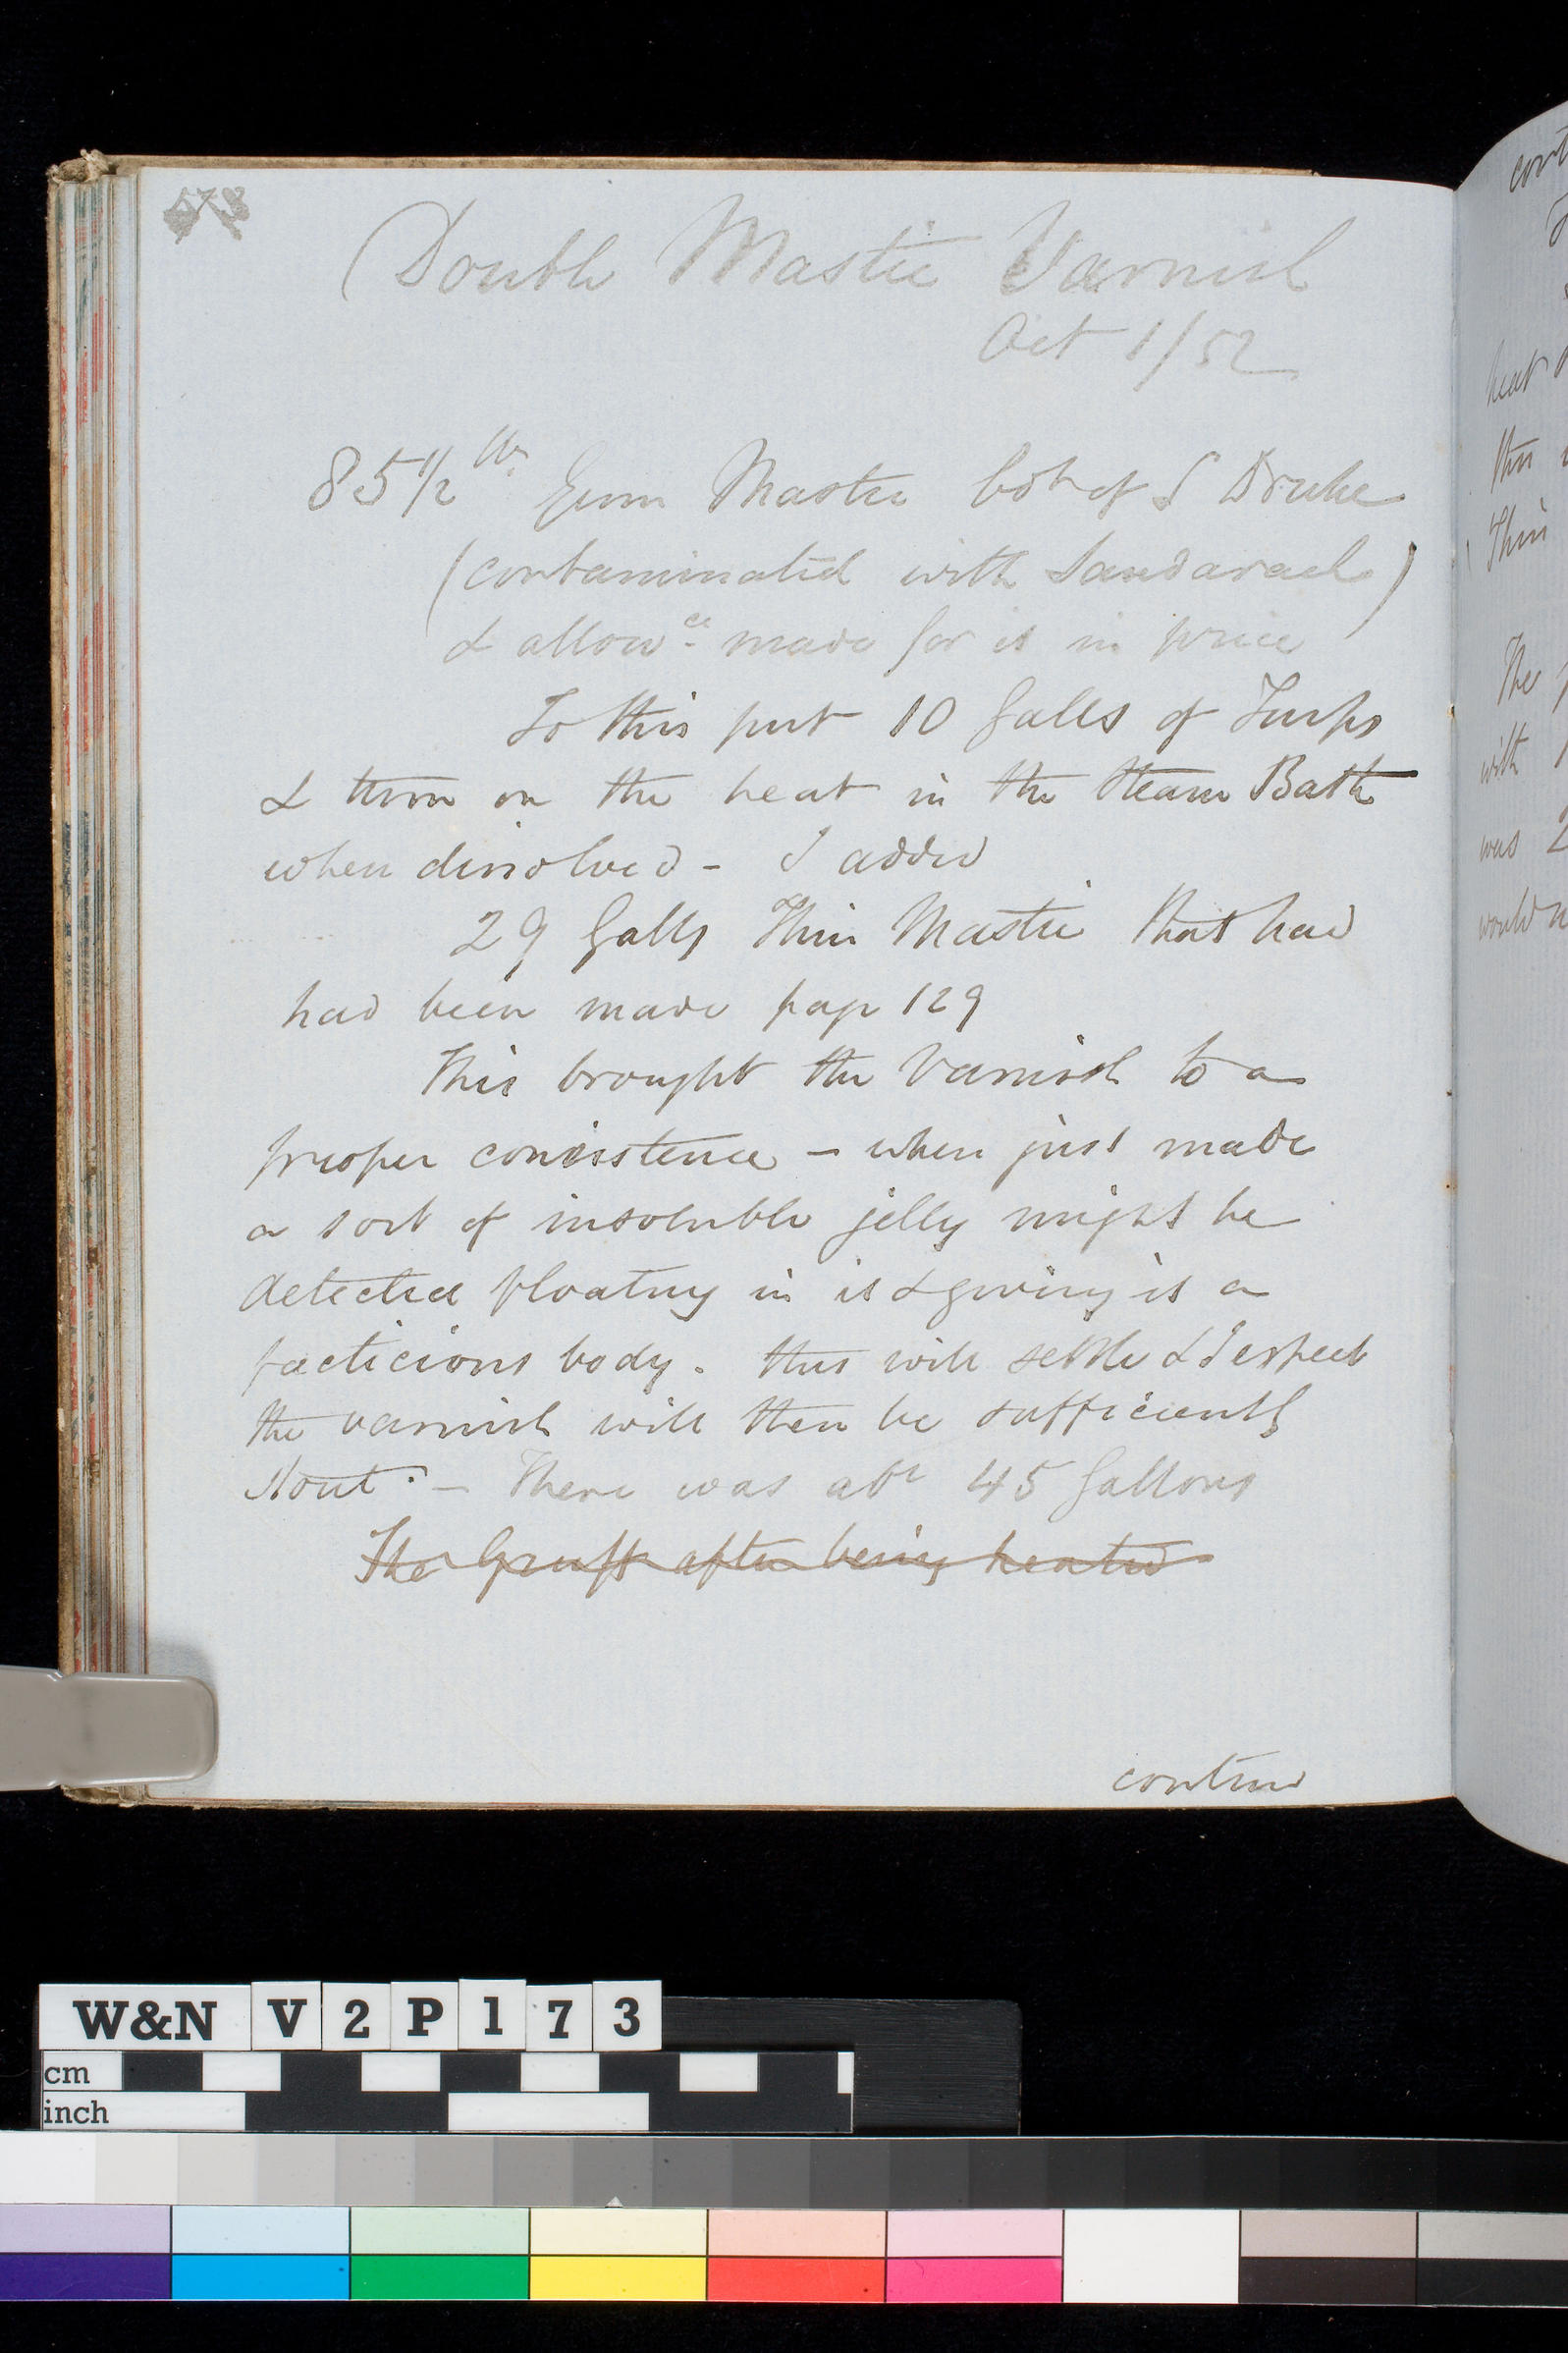 Double Mastic Varnish
Oct 1/52
85 1/2 lbs Gum Mastic bot of S Druke
(contaminated with Sandarach)
& allowce made for it in price
To this put 10 Galls of Turps
& turn on the heat in the Steam Bath
when dissolved - I added
29 Galls Thin Mastic that had
had been made page 129
This brought the Varnish to a
proper consistence - when just made
a sort of insoluble jelly might be
detected floating in it & giving it a
facticious body. this will settle & I expect
the varnish will then be sufficiently
stout. - There was abt 45 Gallons
The Gruff after being heated
contind
cont
heat
this
Thin
The
with
was 2
would
W&N V2P173
cm
inch